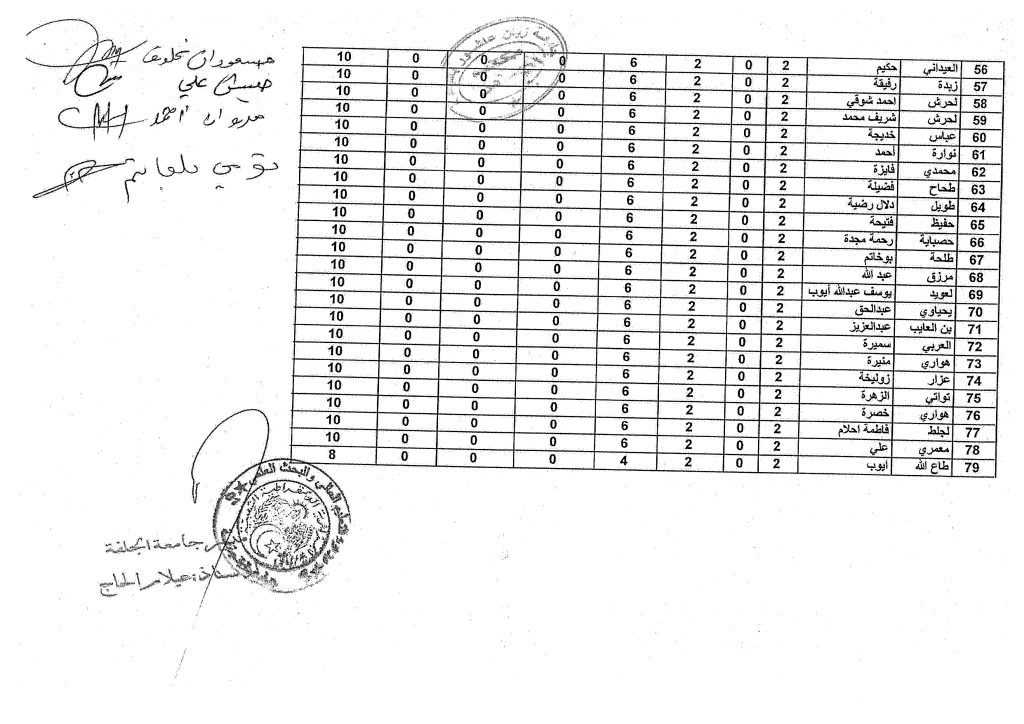 56 العيداني حكيم 2 0 2 6 0 0 0 10
57 زبدة رفيقة 2 0 2 6 0 0 0 10
58 لحرش احمد شوقي 2 0 2 6 0 0 0 10
59 لحرش شريف محمد 2 0 2 6 0 0 0 10
60 عباس خديجة 2 0 2 6 0 0 0 10
61 نوارة أحمد 2 0 2 6 0 0 0 10
62 محمدي فايزة 2 0 2 6 0 0 0 10
63 طحاح فضيلة 2 0 2 6 0 0 0 10
64 طويل دلال رضية 2 0 2 6 0 0 0 10
65 حفيظ فتيحة 2 0 2 6 0 0 0 10
66 حصباية رحمة مجدة 2 0 2 6 0 0 0 10
67 طلحة بوخاتم 2 0 2 6 0 0 0 10
68 مرزق عبد الله 2 0 2 6 0 0 0 10
69 لعويد يوسف عبدالله أيوب 2 0 2 6 0 0 0 10
70 يحياوي عبدالحق 2 0 2 6 0 0 0 10
71 بن العايب عبدالعزيز 2 0 2 6 0 0 0 10
72 العربي سميرة 2 0 2 6 0 0 0 10
73 هواري منيرة 2 0 2 6 0 0 0 10
74 عزار زوليخة 2 0 2 6 0 0 0 10
75 تواتي الزهرة 2 0 2 6 0 0 0 10
76 هواري خصرة 2 0 2 6 0 0 0 10
77 لجلط فاطمة احلام 2 0 2 6 0 0 0 10
78 معمري علي 2 0 2 6 0 0 0 10
79 طاع الله أيوب 2 0 2 4 0 0 0 8
علي
احمد
جامعة زين عاشور
التعليم العالي والبحث العلمي
جامعة الجلفة
عيلام الحاج